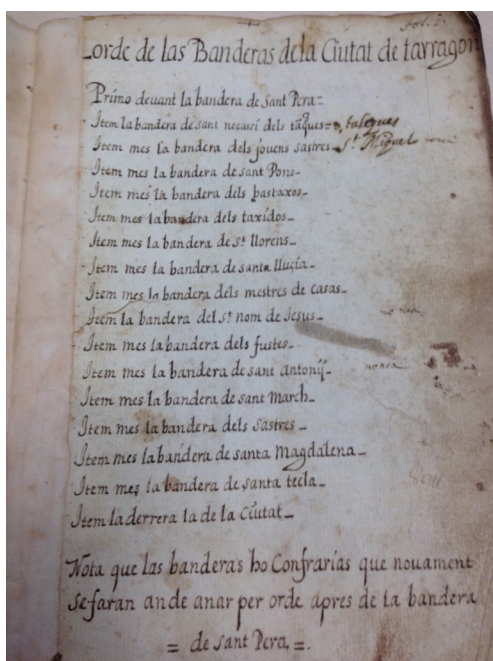 fol. 1.
Lorde de las Banderas dela Ciutat de tarragon
Primo devant la bandera de Sant Pera=
Item la bandera de sant necasi dels taques= o, taleques
Item mes la bandera dels jovens sastres_ St. Miquel
Item mes la bandera de sant Pons_
Item mes la bandera dels bastaxos_
Item mes la bandera dels taxidos_
Item mes la bandera de st. llorens_
Item mes la bandera de santa llucia_
Item mes la bandera dels mestres de casas_
Item la bandera del st. nom de Jesus_ no nea
Item mes la bandera dels fustes_
Item mes la bandera de sant antonÿ_ no nea
Item mes la bandera de sant March_
Item mes la bandera dels sastres_
Item mes la bandera de santa Magdalena_
Item mes la bandera de santa tecla_
Item la derrera la de la Ciutat_
Nota que las banderas ho Confrarias que novament
se faran an de anar per orde apres de la bandera
= de sant Pera =.